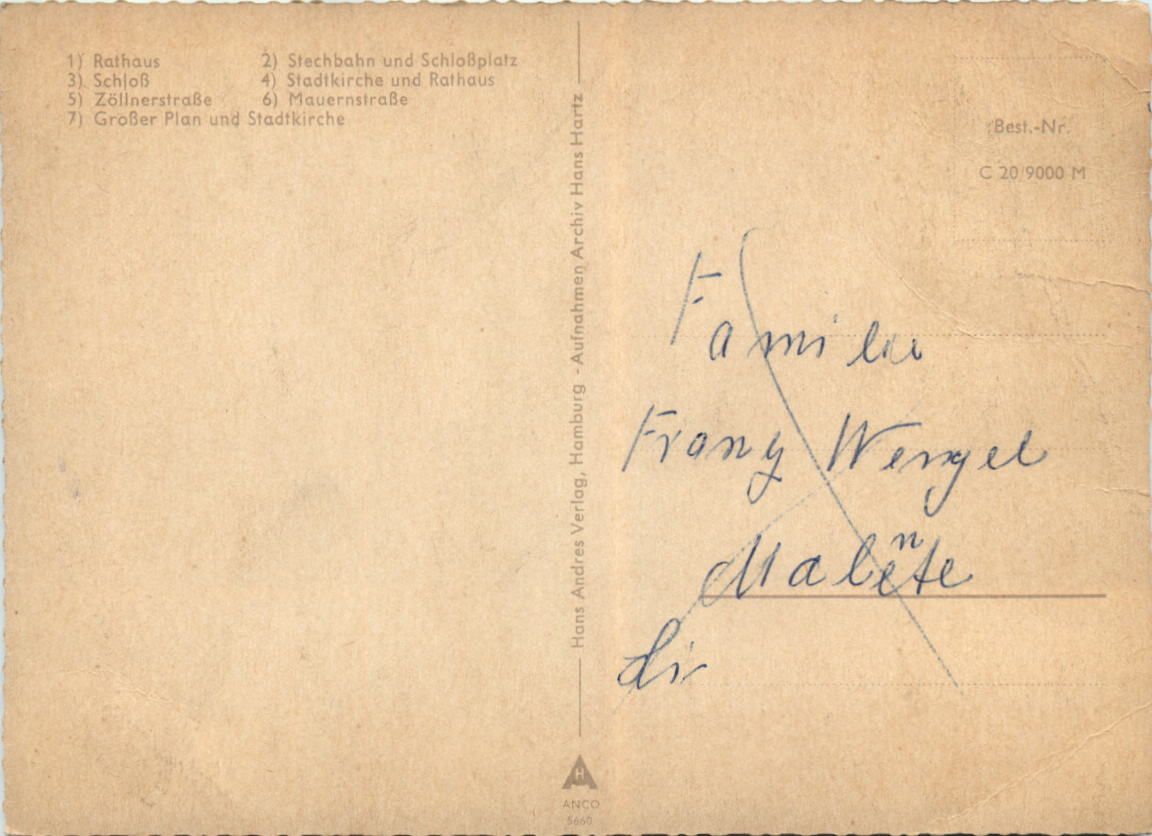 1) Rathaus 2) Stechbahn und Schloßplatz
3) Schloß 4) Stadtkirche und Rathaus
5) Zöllnerstraße 6) Mauernstraße
7) Großer Plan und Stadtkirche
Hans Andres Verlag, Hamburg - Aufnahmen Archiv Hans Hartz
H
ANCO
5660
Best.-Nr.
C 20/9000 M
Familie
Franz Wenzel
Malente